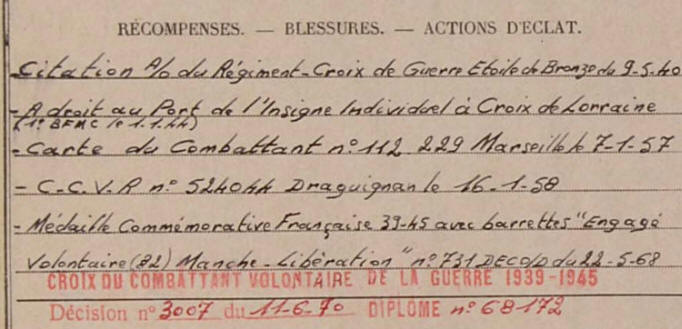 RÉCOMPENSES. — BLESSURES. — ACTIONS D'ECLAT.
Citation A/o du Régiment-Croix de Guerre Etoile de Bronze du 9-5-40
- A droit au Port de l'Insigne Individuel à Croix de Lorraine
(1° BFMC le 1.1.44)
- Carte du Combattant n° 112 229 Marseille le 7-1-57
- C-C.V.R n° 524044 Draguignan le 16-1-58
- Médaille Commémorative Française 39-45 avec barrettes "Engagé
Volontaire (82) Manche - Libération" n° 731 DECO/D du 22-5-68
CROIX DU COMBATTANT VOLONTAIRE DE LA GUERRE 1939-1945
Décision n° 3007 du 11-6-70 DIPLOME n° 68172